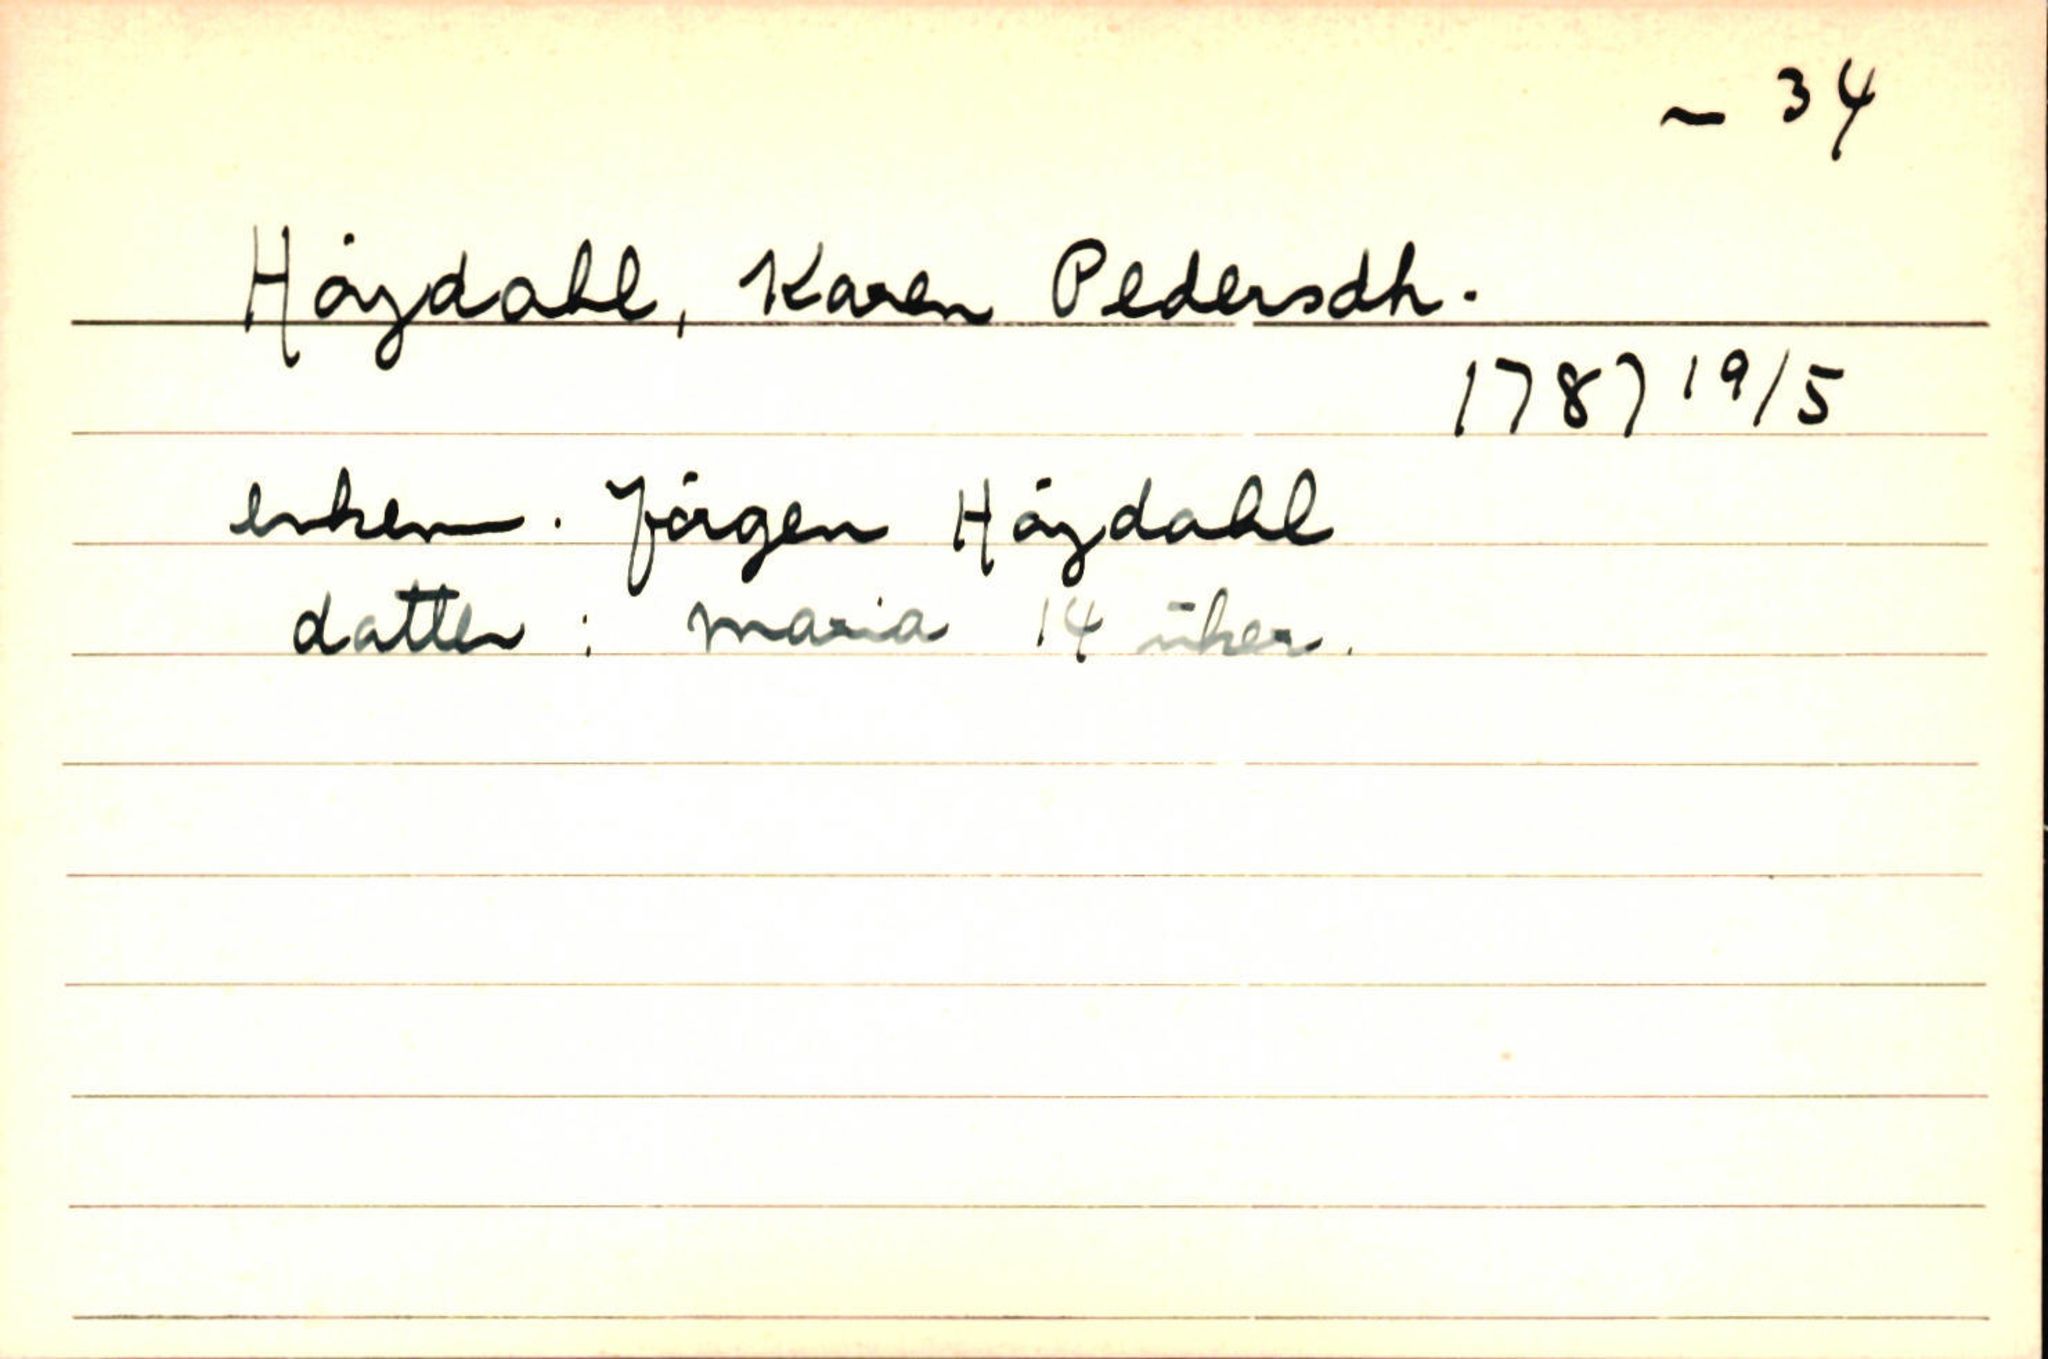 ~ 34
Høydahl, Karen Pedersdtr.
1787 19/5
enkem. Jörgen Høydahl
datter: Maria 14 uker.